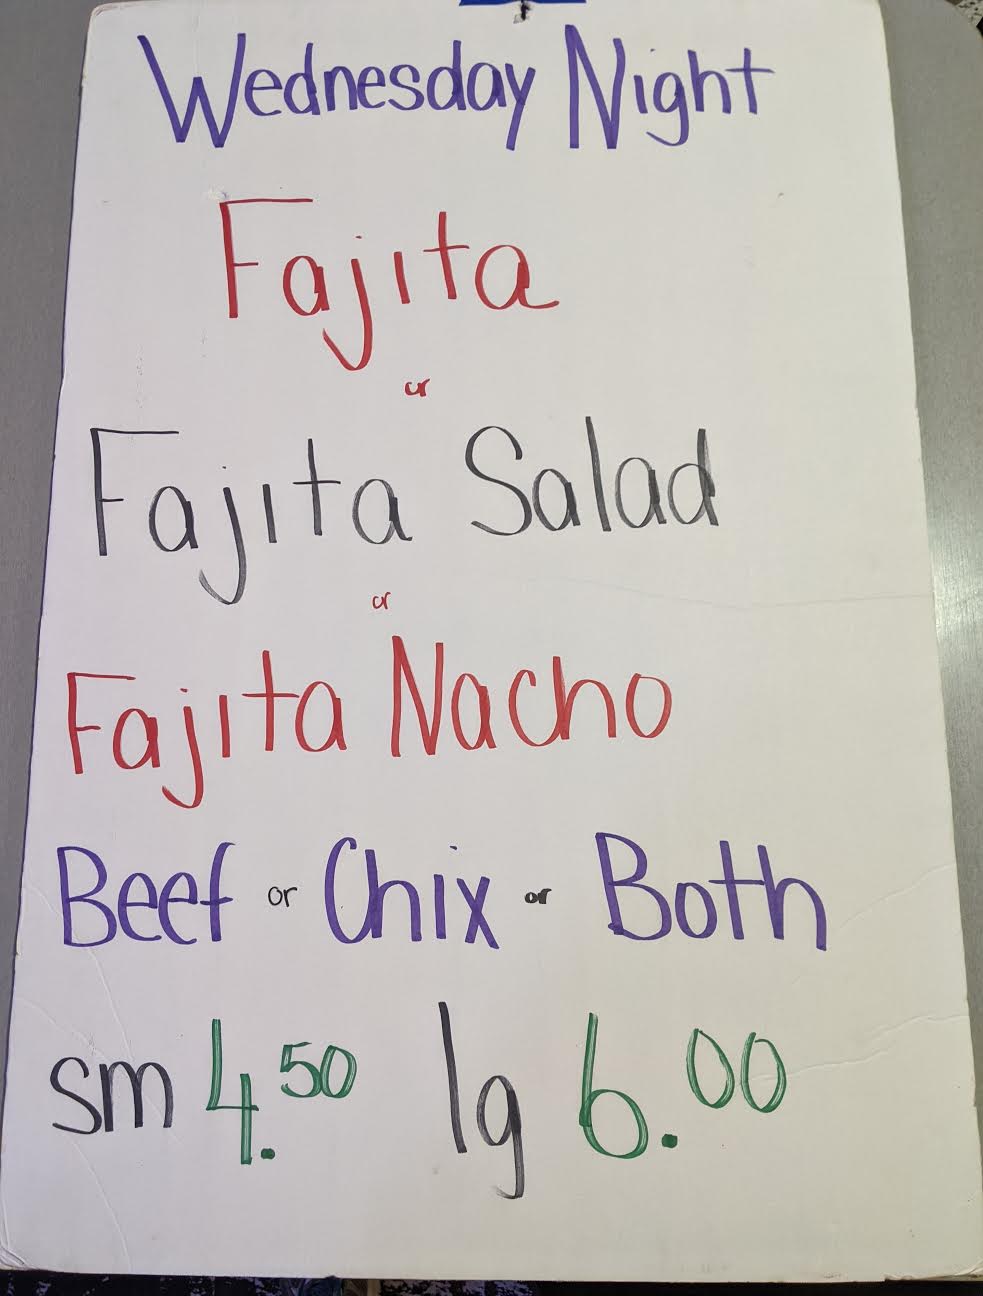 Wednesday Night
Fajita
or
Fajita Salad
or
Fajita Nacho
Beef or Chix or Both
sm 4.50 lg 6.00